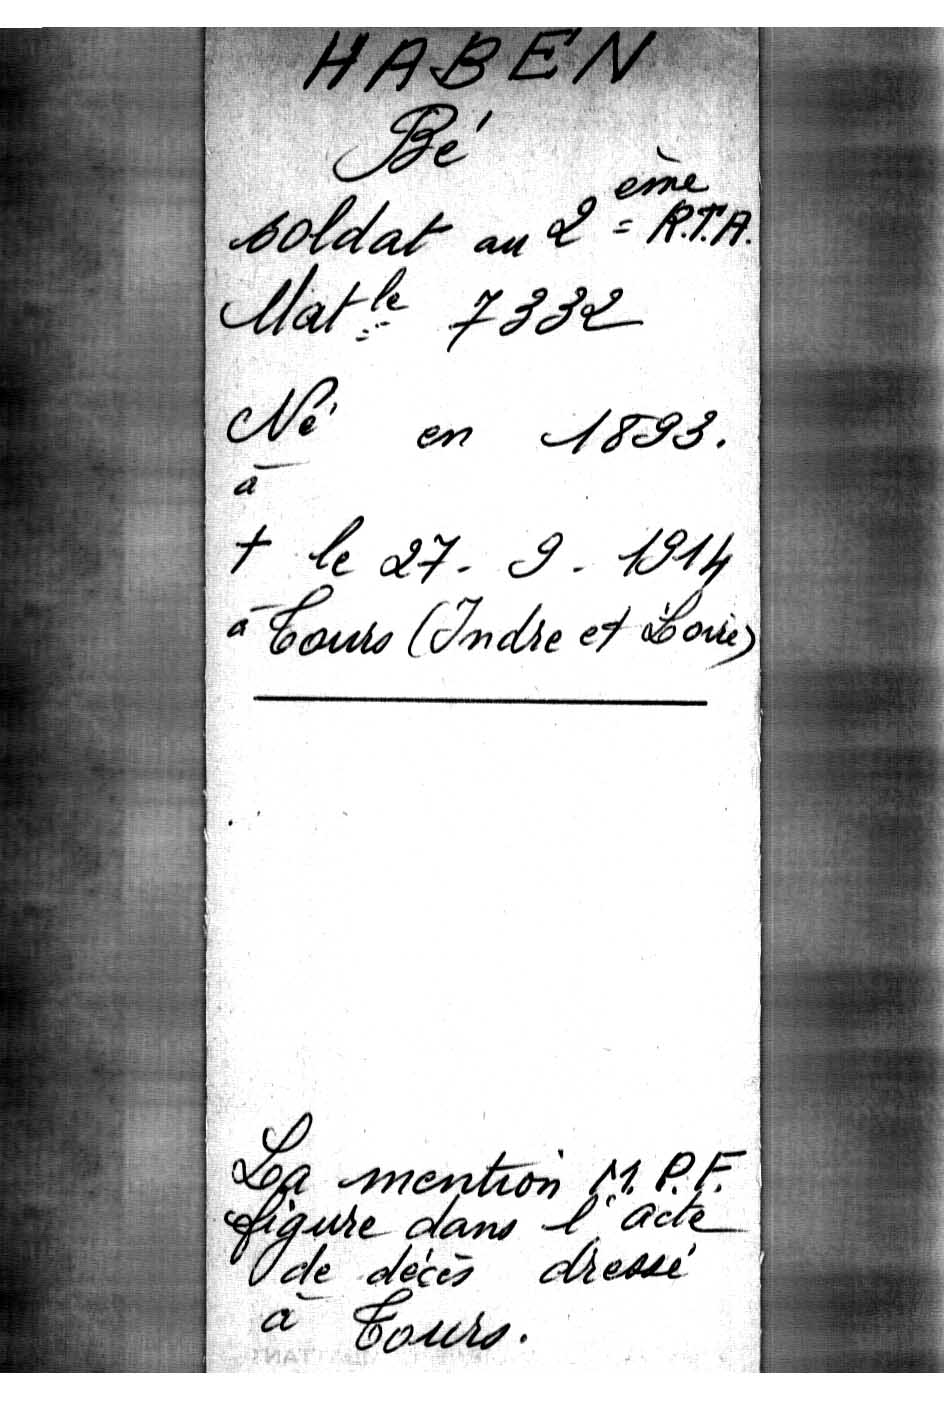 HABEN
Bé
soldat au 2ème R.T.A.
Matle 7332
Né en 1893.
à
+ le 27. 9. 1914
à Tours (Indre et Loire)
La mention M.P.F.
figure dans l'acte
de décès dressé
à Tours.